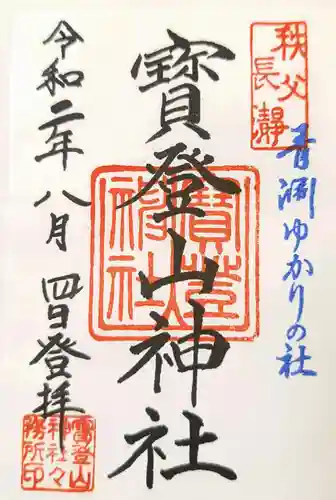 秩父
長瀞
青淵ゆかりの社
寶登山神社
寶登山
神社
令和二年八月四日登拝
寶登山
神社々
務所印